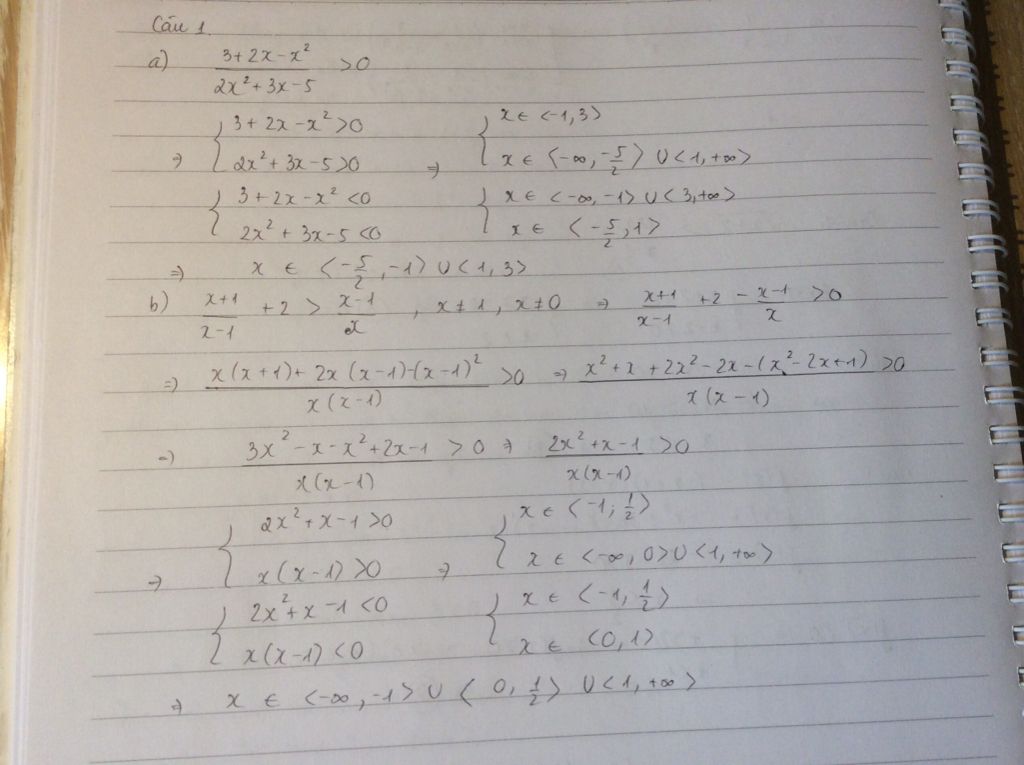 Câu 1.
a) (3+2x-x²)/(2x²+3x-5) >0
⇒ { 3+2x-x²>0 ; 2x²+3x-5>0 ⇒ { x ∈ <-1,3> ; x ∈ <-∞,-5/2> ∪ <1,+∞>
{ 3+2x-x²<0 ; 2x²+3x-5<0 { x ∈ <-∞,-1> ∪ <3,+∞> ; x ∈ <-5/2,1>
⇒ x ∈ <-5/2,-1> ∪ <1,3>
b) (x+1)/(x-1) +2 > (x-1)/x , x≠1, x≠0 ⇒ (x+1)/(x-1) +2 - (x-1)/x >0
⇒ (x(x+1)+2x(x-1)-(x-1)²)/(x(x-1)) >0 ⇒ (x²+x+2x²-2x-(x²-2x+1))/(x(x-1)) >0
⇒ (3x²-x-x²+2x-1)/(x(x-1)) >0 ⇒ (2x²+x-1)/(x(x-1)) >0
⇒ { 2x²+x-1>0 ; x(x-1)>0 ⇒ { x ∈ <-1;1/2> ; x ∈ <-∞,0> ∪ <1,+∞>
{ 2x²+x-1<0 ; x(x-1)<0 { x ∈ <-1,1/2> ; x ∈ <0,1>
⇒ x ∈ <-∞,-1> ∪ <0,1/2> ∪ <1,+∞>